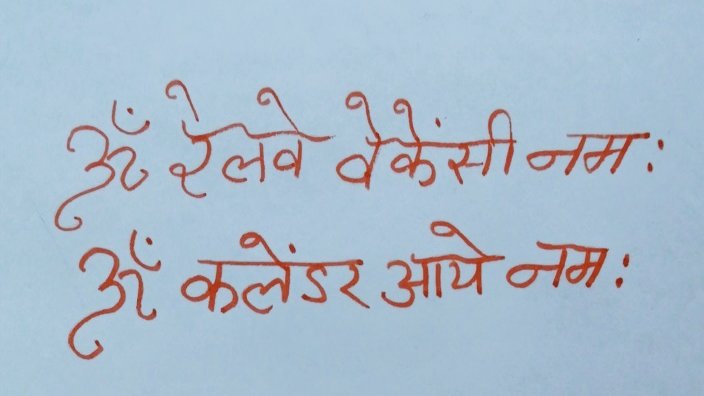 ॐ रेलवे वेकेंसी नम:
ॐ कलेंडर आये नम: